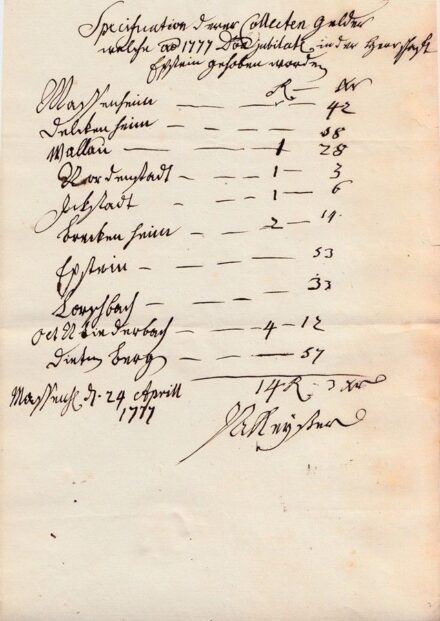 Specification derer Collecten gelder
welche ad 1777 Dom jubilate in der Herrschafft
Epstein gehoben worden
R — xr
Massenheim — — — 42
Delckenheim — — — 58
Wallau — — 1 28
Nordenstadt — — 1 — 3
Ickstadt — — 1 — 6
Breckenheim — — 2 — 19
Epstein — — — 53
Lorsbach — — — 33
Niederbach — — 4 — 12
— — — 57
14 R — 3 xr
Massenh. d. 24 Aprill
1777